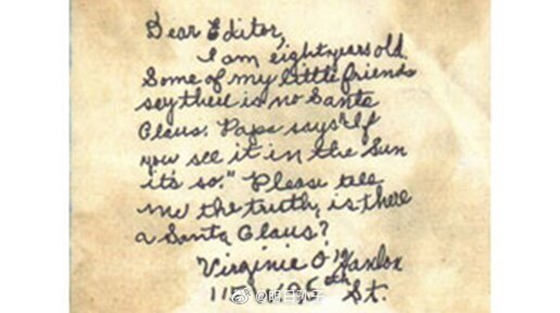 Dear Editor,
I am eight years old.
Some of my little friends
say there is no Santa
Claus. Papa says "If
you see it in the Sun
it's so." Please tell
me the truth, is there
a Santa Claus?
Virginia O'Hanlon
115 W. 95th St.